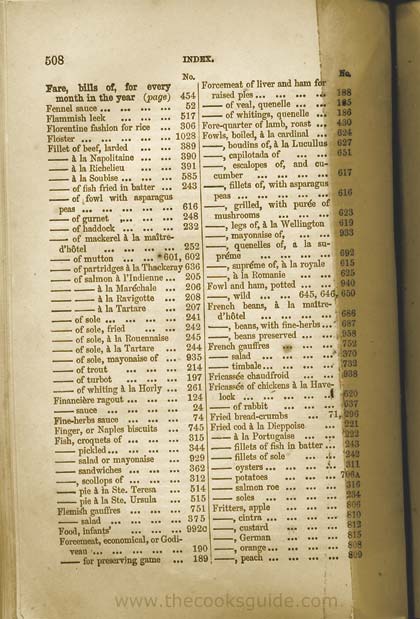 508
INDEX.
No.
Fare, bills of, for every
month in the year (page) 454
Fennel sauce ... ... ... ... 52
Flammish leek ... ... ... 517
Florentine fashion for rice ... 306
Floster ... ... ... ... ... 1028
Fillet of beef, larded ... ... 389
—— à la Napolitaine ... ... 390
—— à la Richelieu ... ... 391
—— à la Soubise ... ... ... 585
—— of fish fried in batter ... 243
—— of fowl with asparagus
peas ... ... ... ... ... 616
—— of gurnet ... ... ... 248
—— of haddock ... ... ... 232
—— of mackerel à la maître-
d'hôtel ... ... ... ... 252
—— of mutton ... ... 601, 602
—— of partridges à la Thackeray 636
—— of salmon à l'Indienne ... 205
—— —— à la Maréchale ... 206
—— —— à la Ravigotte ... 208
—— —— à la Tartare ... 207
—— of sole ... ... ... ... 241
—— of sole, fried ... ... 242
—— of sole, à la Rouennaise 245
—— of sole, à la Tartare ... 244
—— of sole, mayonaise of ... 935
—— of trout ... ... ... 214
—— of turbot ... ... ... 197
—— of whiting à la Horly ... 261
Financière ragout ... ... ... 124
—— sauce ... ... ... ... 24
Fine-herbs sauce ... ... ... 74
Finger, or Naples biscuits ... 745
Fish, croquets of ... ... ... 315
—— pickled ... ... ... ... 344
—— salad or mayonaise ... 929
—— sandwiches ... ... ... 362
——, scollops of ... ... ... 312
—— pie à la Ste. Teresa ... 514
—— pie à la Ste. Ursula ... 515
Flemish gauffres ... ... ... 751
—— salad ... ... ... ... 375
Food, infants' ... ... ... 992c
Forcement, economical, or Godi-
veau ... ... ... ... ... 190
—— for preserving game ... 189
No.
Forcement of liver and ham for
raised pies ... ... ... ... 188
—— of veal, quenelle ... ... 185
—— of whitings, quenelle ... 186
Fore-quarter of lamb, roast ... 430
Fowls, boiled, à la cardinal ... 624
——, boudins of, à la Lucullus 627
——, capilotada of ... ... 651
——, escalopes of, and cu-
cumber ... ... ... ... 617
——, fillets of, with asparagus
peas ... ... ... ... ... 616
——, grilled, with purée of
mushrooms ... ... ... 623
——, legs of, à la Wellington 619
——, mayonaise of, ... ... 933
——, quenelles of, a la su-
prême ... ... ... ... 692
——, suprême of, à la royale 615
—— à la Romanie ... ... 625
Fowl and ham, potted ... ... 940
——, wild ... ... 645, 646, 650
French beans, à la maître-
d'hôtel ... ... ... ... 686
——, beans, with fine-herbs ... 687
——, beans preserved ... ... 958
French gauffres ... ... ... 752
—— salad ... ... ... ... 370
—— timbale ... ... ... ... 732
Fricassée chaudfroid ... ... 938
Fricassée of chickens à la Have-
lock ... ... ... ... ... 620
—— of rabbit ... ... ... 637
Fried bread-crumbs ... 71, 296
Fried cod à la Dieppoise ... 221
—— à la Portugaise ... ... 222
—— fillets of fish in batter ... 243
—— fillets of sole ... ... 242
—— oysters ... ... ... ... 311
—— potatoes ... ... ... 706A
—— salmon roe ... ... ... 316
—— soles ... ... ... ... 234
Fritters, apple ... ... ... 806
——, cintra ... ... ... ... 810
——, custard ... ... ... 812
——, German ... ... ... 815
——, orange ... ... ... ... 808
——, peach ... ... ... ... 809
www.thecooksguide.com